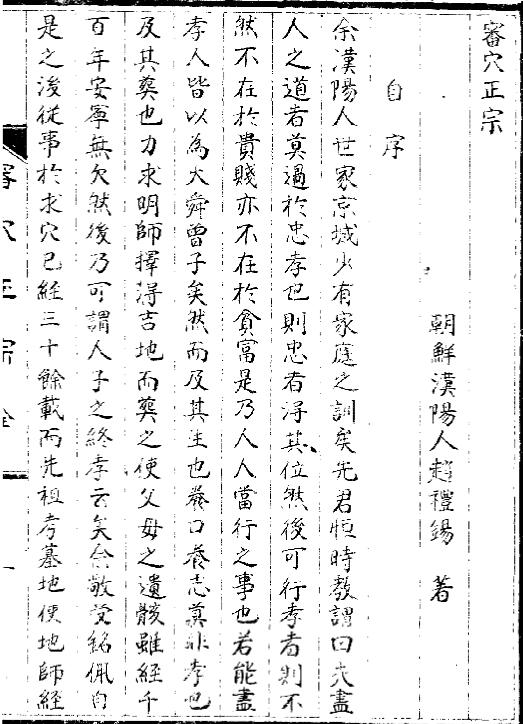 審穴正宗
朝鮮漢陽人趙禮錫 著
自序
余漢陽人世家京城少有家庭之訓矣先君恒時教謂曰夫盡
人之道者莫過於忠孝也則忠者浔其位然後可行孝者則不
然不在於貴賤亦不在於貧富是乃人人當行之事也若能盡
孝人皆以為大舜曾子矣然而及其生也養口養志莫非孝也
及其葬也力求明師擇浔吉地而葬之使父母之遺骸雖經千
百年安寧無欠然後乃可謂人子之終孝云矣余敬受銘佩自
是之後從事於求穴已經三十餘載而先祖考墓地使地師經
審穴正宗 全
一